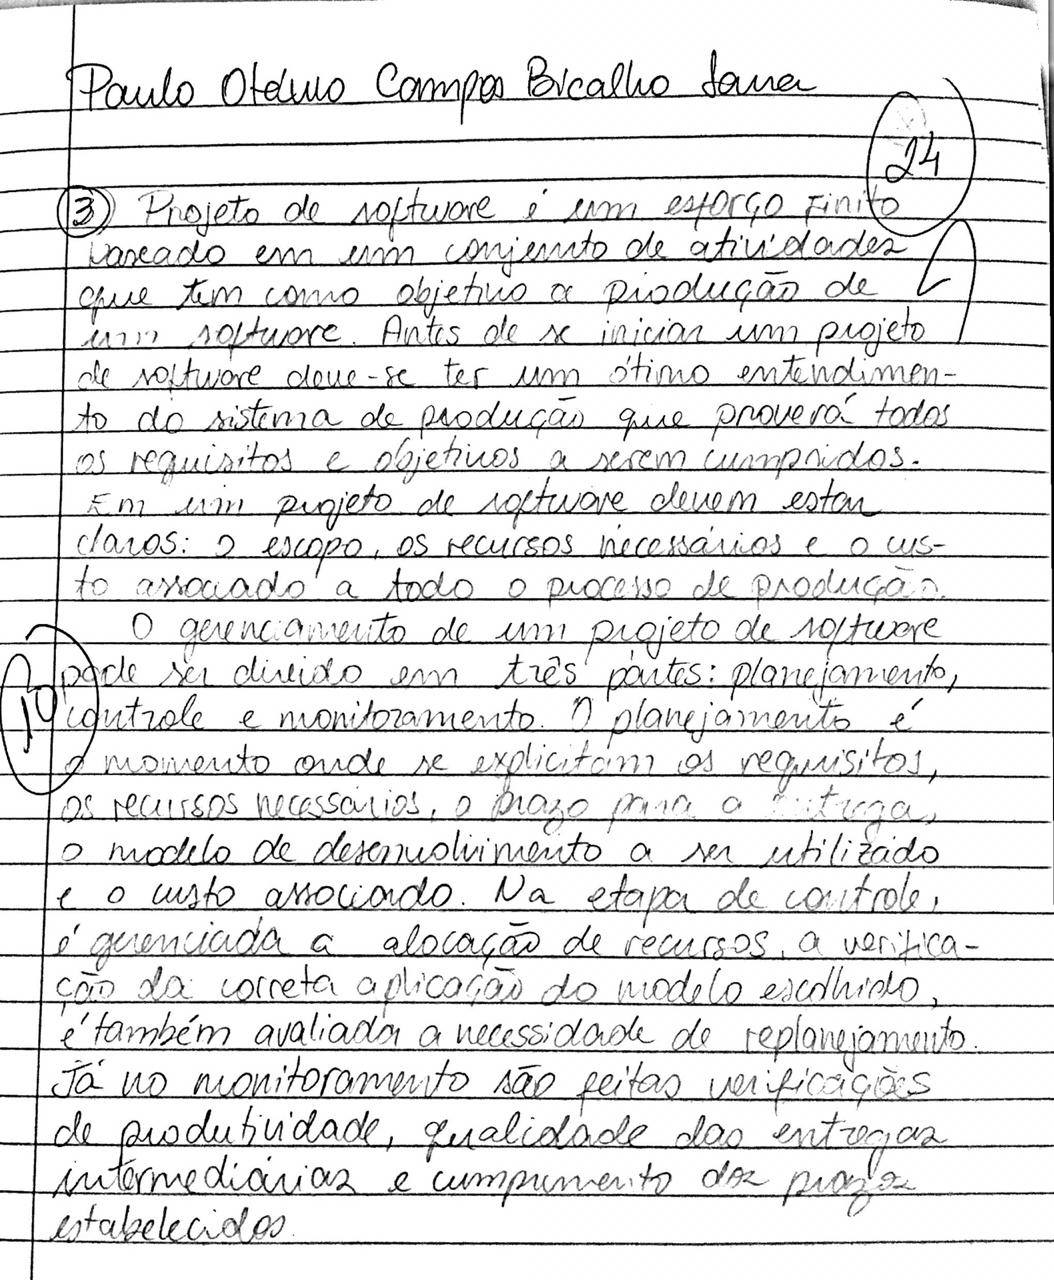 Paulo Otávio Campos Bicalho
24
③ Projeto de software é um esforço finito
baseado em um conjunto de atividades
que tem como objetivo a produção de
um software. Antes de se iniciar um projeto
de software deve-se ter um ótimo entendimen-
to do sistema de produção que proverá todos
os requisitos e objetivos a serem cumpridos.
Em um projeto de software devem estar
claros: o escopo, os recursos necessários e o cus-
to associado a todo o processo de produção.
O gerenciamento de um projeto de software
pode ser divido em três partes: planejamento,
10
controle e monitoramento. O planejamento é
o momento onde se explicitam os requisitos,
os recursos necessários, o prazo para a entrega,
o modelo de desenvolvimento a ser utilizado
e o custo associado. Na etapa de controle,
é gerenciada a alocação de recursos, a verifica-
ção da correta aplicação do modelo escolhido,
é também avaliada a necessidade de replanejamento.
Já no monitoramento são feitas verificações
de produtividade, qualidade das entregas
intermediárias e cumprimento dos prazos
estabelecidos.